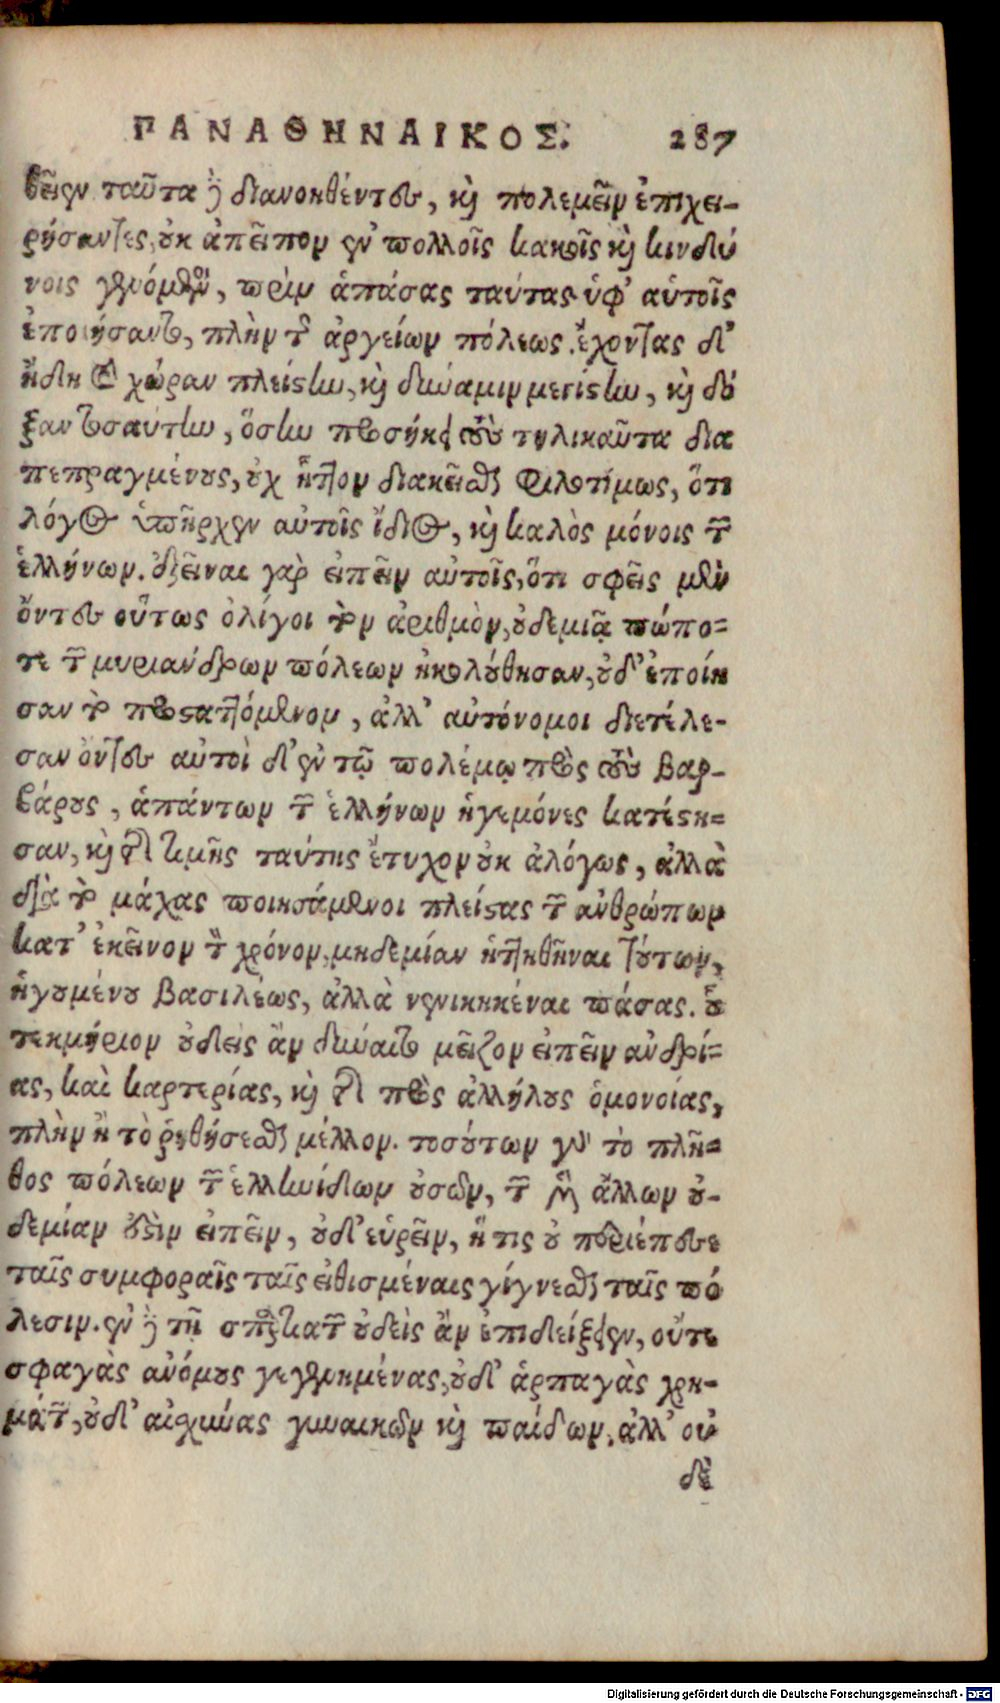 ΠΑΝΑΘΗΝΑΙΚΟΣ. 287
θεῖεν ταῦτα δὲ διανοηθέντες, καὶ πολεμεῖν ἐπιχει-
ρήσαντες, οὐκ ἀπεῖπον ἐν πολλοῖς κακοῖς καὶ κινδύ
νοις γενόμενοι, πρὶν ἁπάσας ταύτας ὑφ' αὑτοῖς
ἐποιήσαντο, πλὴν τῆς ἀργείων πόλεως. ἔχοντας δ'
ἤδη καὶ χώραν πλείστην, καὶ δύναμιν μεγίστην, καὶ δό
ξαν τοσαύτην, ὅσην προσήκει τοὺς τηλικαῦτα δια
πεπραγμένους, οὐχ ἧττον διακεῖσθαι φιλοτίμως, ὅτι
λόγος ὑπῆρχεν αὐτοῖς ἴδιος, καὶ καλὸς μόνοις τῶν
ἑλλήνων. ἐξεῖναι γὰρ εἰπεῖν αὐτοῖς, ὅτι σφεῖς μὲν
ὄντες οὕτως ὀλίγοι τὸν ἀριθμὸν, οὐδεμιᾷ πώπο-
τε τῶν μυριάνδρων πόλεων ἠκολούθησαν, οὐδ' ἐποίη
σαν τὸ προσταττόμενον, ἀλλ' αὐτόνομοι διετέλε-
σαν ὄντες αὐτοὶ δ' ἐν τῷ πολέμῳ πρὸς τοὺς βαρ-
βάρους, ἁπάντων τῶν ἑλλήνων ἡγεμόνες κατέστη-
σαν, καὶ τῆς τιμῆς ταύτης ἔτυχον οὐκ ἀλόγως, ἀλλὰ
διὰ τὸ μάχας ποιησάμενοι πλείστας τῶν ἀνθρώπων
κατ' ἐκεῖνον τὸν χρόνον, μηδεμίαν ἡττηθῆναι τούτων,
ἡγουμένου βασιλέως, ἀλλὰ νενικηκέναι πάσας. οὗ
τεκμήριον οὐδεὶς ἂν δύναιτο μεῖζον εἰπεῖν ἀνδρί-
ας, καὶ καρτερίας, καὶ τῆς πρὸς ἀλλήλους ὁμονοίας,
πλὴν ἢ τὸ ῥηθήσεσθαι μέλλον. τοσούτων γὰρ τὸ πλῆ-
θος πόλεων τῶν ἑλληνίδων οὐσῶν, τῶν μὲν ἄλλων οὐ-
δεμίαν οὐδεὶν εἰπεῖν, οὐδ' εὑρεῖν, ἥ τις οὐ περιέπεσε
ταῖς συμφοραῖς ταῖς εἰθισμέναις γίγνεσθαι ταῖς πό
λεσιν. ἐν δὲ τῇ σπαρτιατῶν οὐδεὶς ἂν ἐπιδείξειεν, οὔτε
σφαγὰς ἀνόμους γεγενημένας, οὐδ' ἁρπαγὰς χρη-
μάτων, οὐδ' αἰσχύνας γυναικῶν καὶ παίδων, ἀλλ' οὐ
δὲ
Digitalisierung gefördert durch die Deutsche Forschungsgemeinschaft - DFG